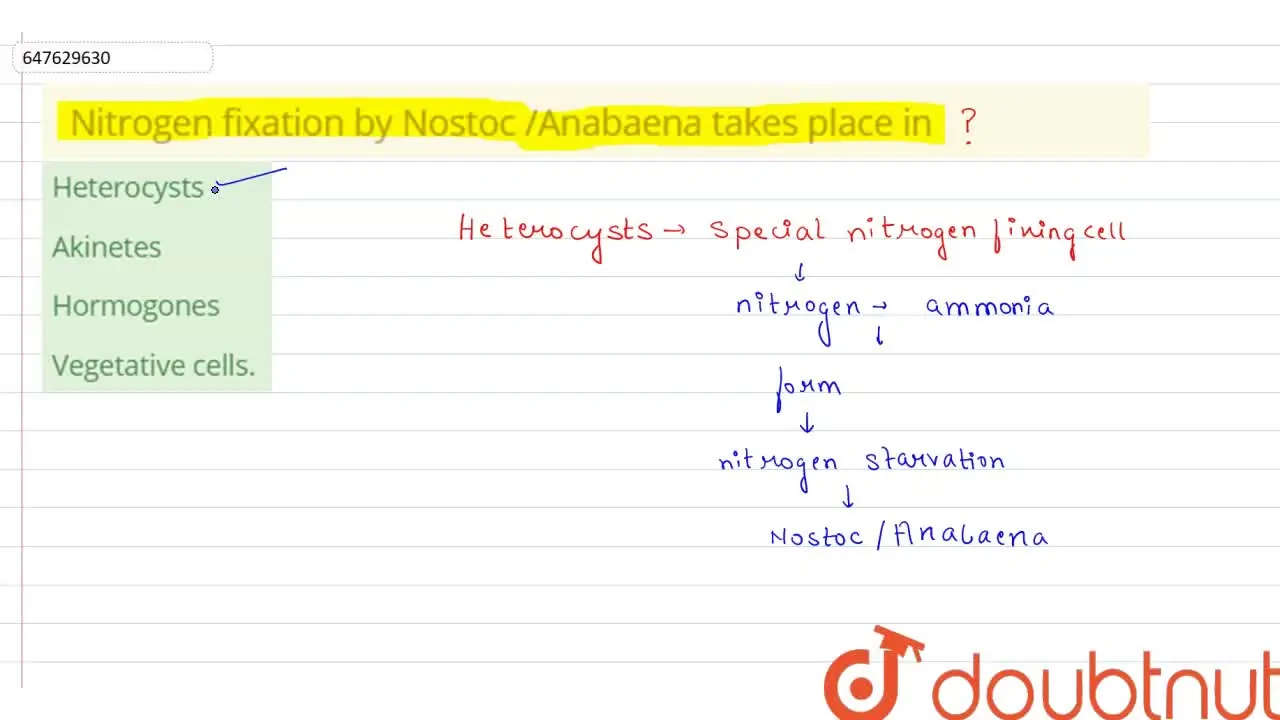 647629630
Nitrogen fixation by Nostoc /Anabaena takes place in ?
Heterocysts
Akinetes
Hormogones
Vegetative cells.
Heterocysts → special nitrogen fixing cell
↓
nitrogen → ammonia
↓
form
↓
nitrogen starvation
↓
Nostoc / Anabaena
doubtnut